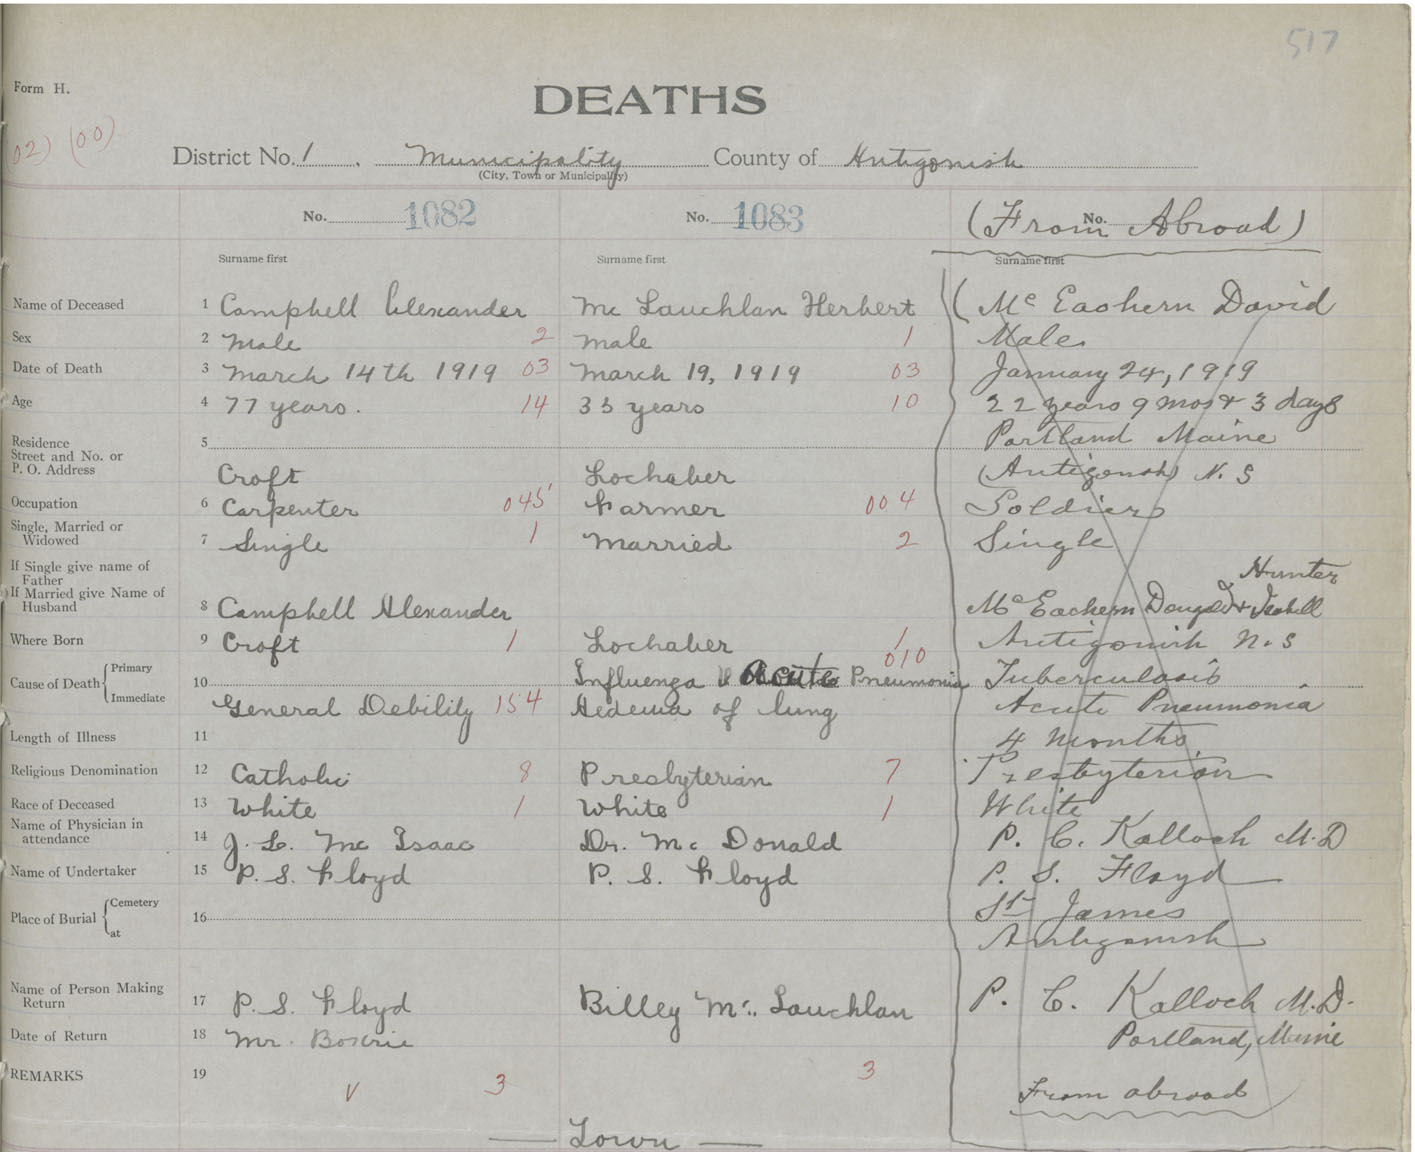 517
Form H.
DEATHS
02) (00)
District No. 1 . Municipality County of Antigonish
(City, Town or Municipality)
No. 1082 No. 1083 No. (From Abroad)
Surname first Surname first Surname first
Name of Deceased 1 Campbell Alexander Mc Lauchlan Herbert (Mc Eachern David
Sex 2 Male 2 Male 1 Male
Date of Death 3 March 14th 1919 03 March 19, 1919 03 January 24, 1919
Age 4 77 years. 14 35 years 10 22 years 9 mos & 3 days
Residence 5 Portland Maine
Street and No. or
P. O. Address Croft Lochaber (Antigonish) N. S
Occupation 6 Carpenter 045 Farmer 004 Soldier
Single, Married or
Widowed 7 Single 1 Married 2 Single
If Single give name of
Father Hunter
If Married give Name of
Husband 8 Campbell Alexander Mc Eachern Dougald & Isabell
Where Born 9 Croft 1 Lochaber 1 Antigonish N. S
010
Cause of Death Primary 10 Influenza & Acute Pneumonia Tuberculosis
Immediate General Debility 154 Aedema of lung Acute Pneumonia
Length of Illness 11 4 Months
Religious Denomination 12 Catholic 8 Presbyterian 7 Presbyterian
Race of Deceased 13 White 1 White 1 White
Name of Physician in
attendance 14 J. L. Mc Isaac Dr. Mc Donald P. C. Kalloch M.D
Name of Undertaker 15 P. S. Floyd P. S. Floyd P. S. Floyd
Place of Burial Cemetery 16 St James
at Antigonish
Name of Person Making
Return 17 P. S. Floyd Billey Mc Lauchlan P. C. Kalloch M.D.
Date of Return 18 Mr. Portland, Maine
REMARKS 19 V 3 3 From abroad
Town